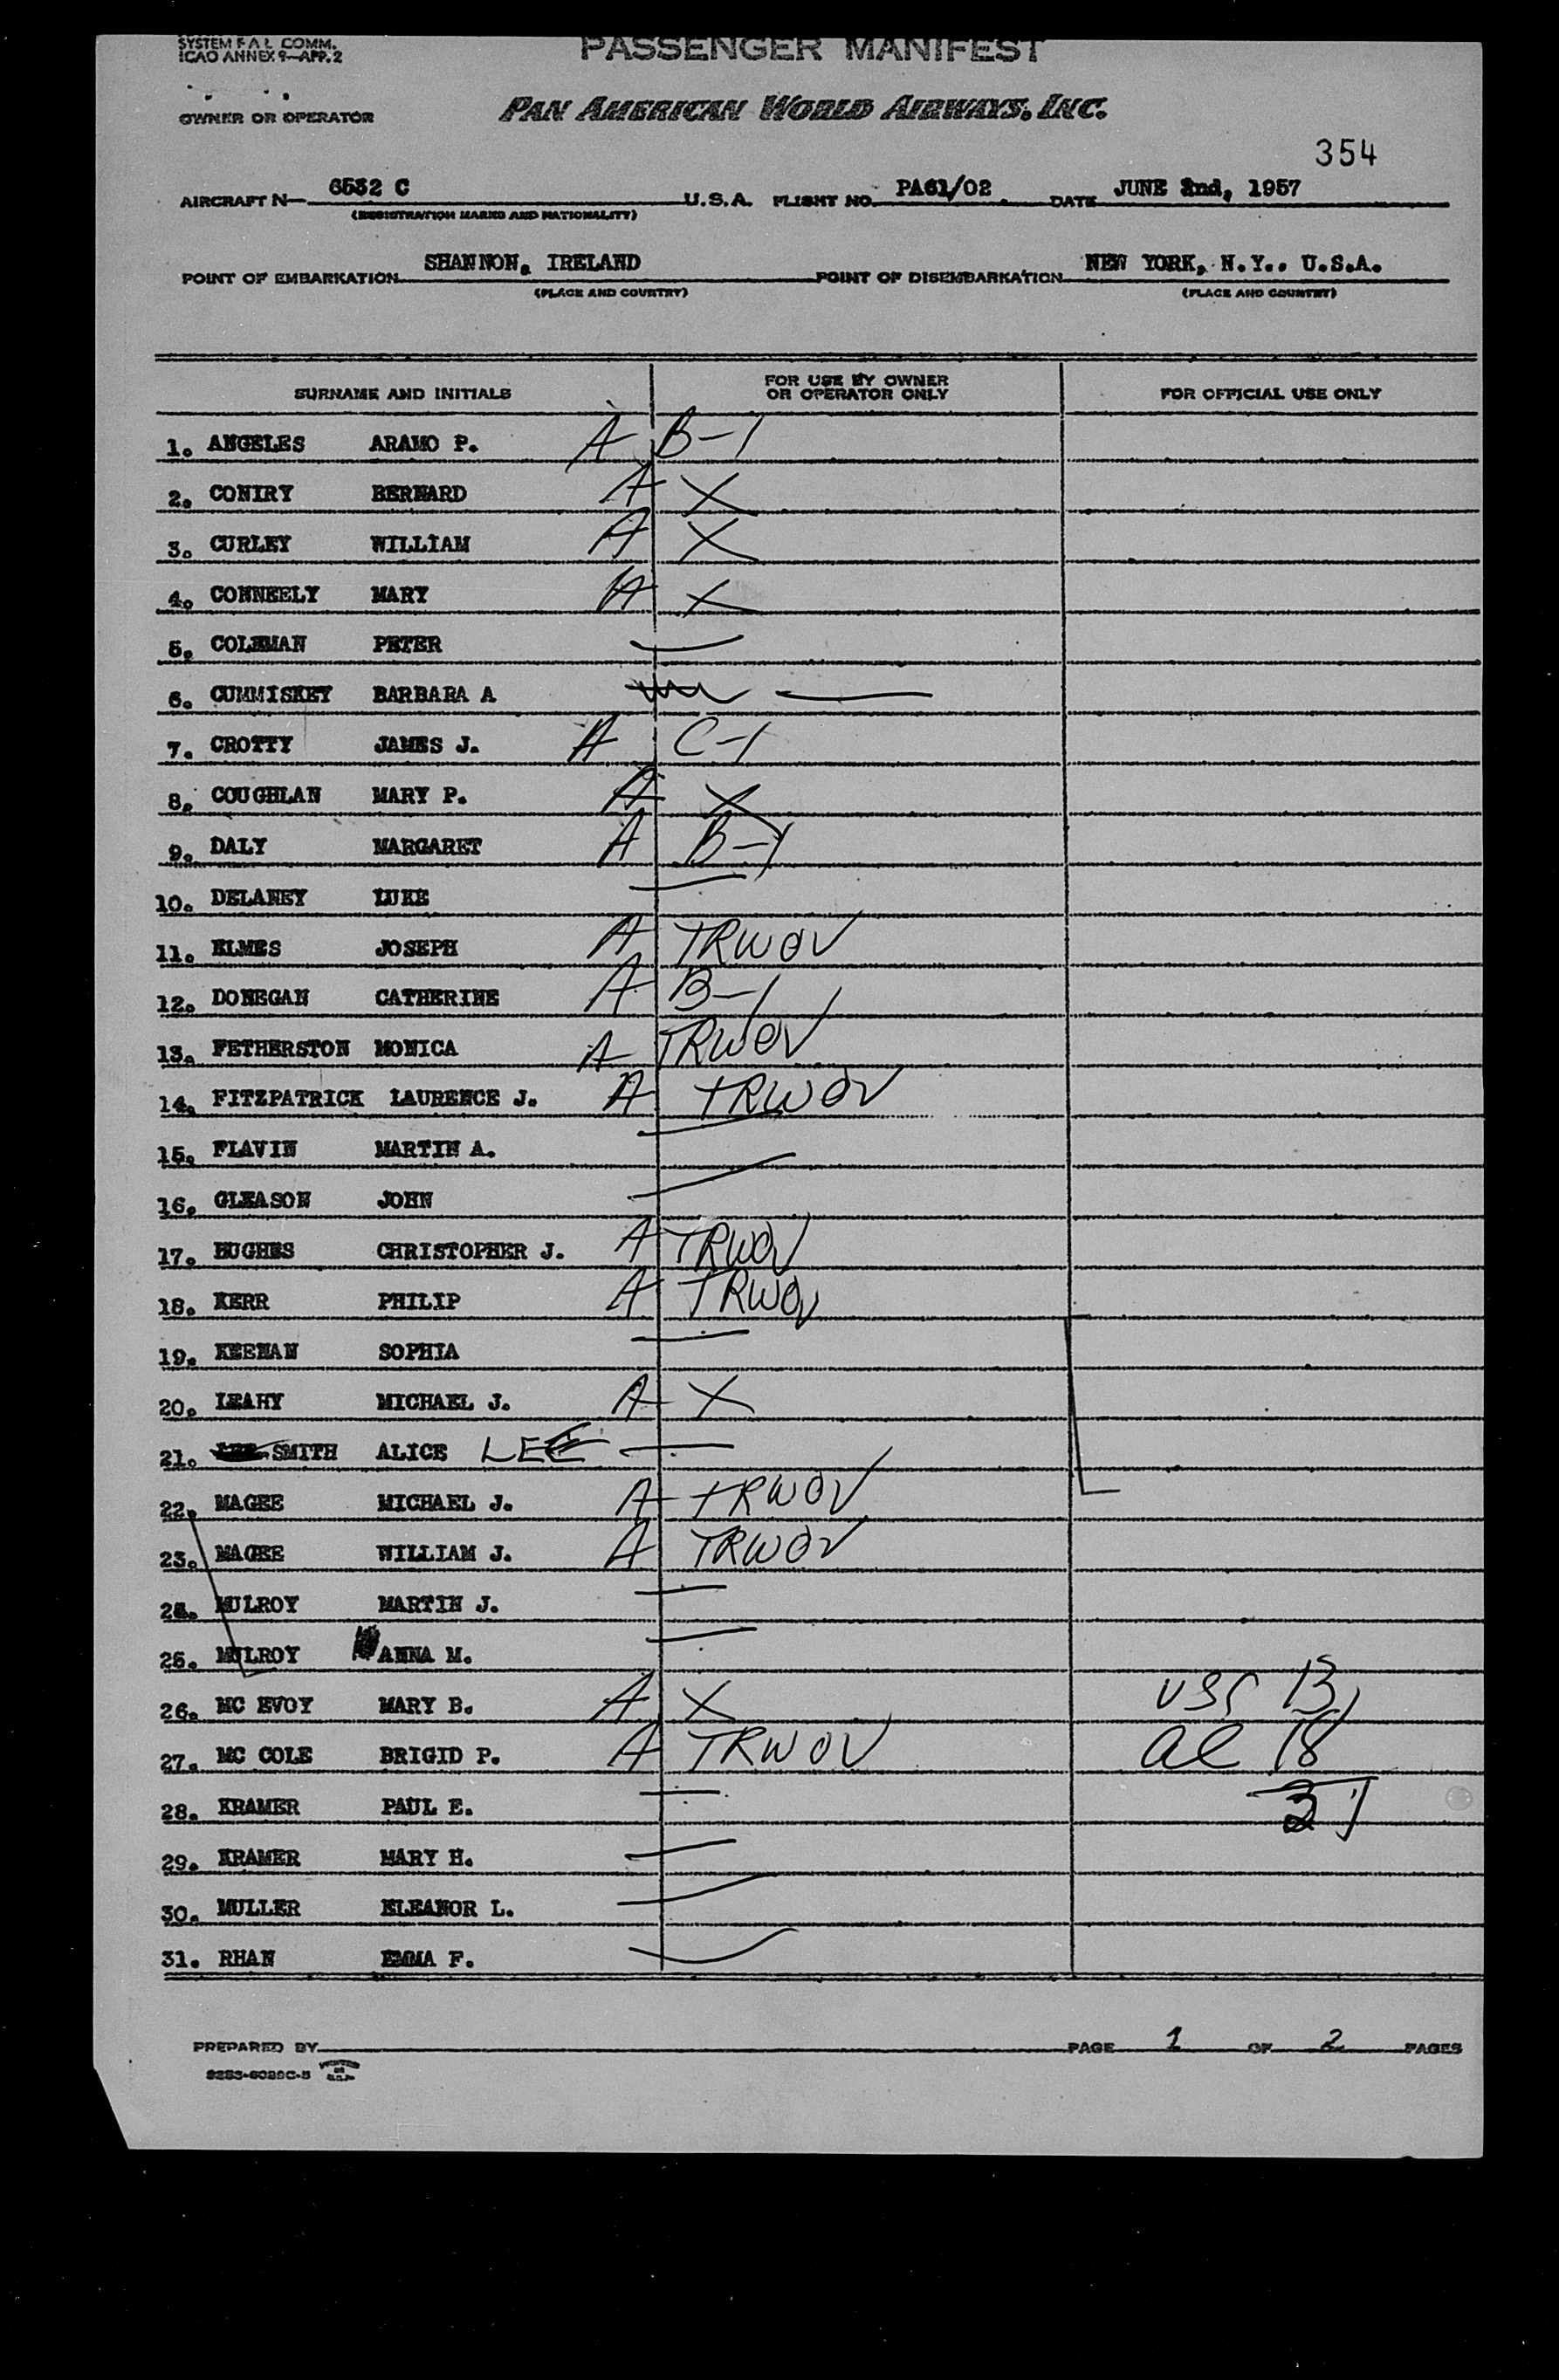 SYSTEM F A L COMM.
ICAO ANNEX 9—APP. 2
PASSENGER MANIFEST
OWNER OR OPERATOR
PAN AMERICAN WORLD AIRWAYS, INC.
354
AIRCRAFT N— 6532 C U.S.A. FLIGHT NO. PA61/02 DATE JUNE 2nd, 1957
(REGISTRATION MARKS AND NATIONALITY)
POINT OF EMBARKATION SHANNON, IRELAND POINT OF DISEMBARKATION NEW YORK, N.Y.. U.S.A.
(PLACE AND COUNTRY) (PLACE AND COUNTRY)
SURNAME AND INITIALS FOR USE BY OWNER OR OPERATOR ONLY FOR OFFICIAL USE ONLY
1. ANGELES ARAMO P. A B-1
2. CONIRY BERNARD A X
3. CURLEY WILLIAM A X
4. CONNEELY MARY A X
5. COLEMAN PETER —
6. CUMMISKEY BARBARA A —
7. CROTTY JAMES J. A C-1
8. COUGHLAN MARY P. A X
9. DALY MARGARET A B-1
10. DELANEY LUKE —
11. ELMES JOSEPH A TRWOV
12. DONEGAN CATHERINE A B-1
13. FETHERSTON MONICA A TRWOV
14. FITZPATRICK LAURENCE J. A TRWOV
15. FLAVIN MARTIN A. —
16. GLEASON JOHN —
17. HUGHES CHRISTOPHER J. A TRWOV
18. KERR PHILIP A TRWOV
19. KEENAN SOPHIA —
20. LEAHY MICHAEL J. A X
21. SMITH ALICE LEE —
22. MAGEE MICHAEL J. A TRWOV
23. MAGEE WILLIAM J. A TRWOV
24. MULROY MARTIN J. —
25. MULROY ANNA M. —
26. MC EVOY MARY B. A X USC 13
27. MC COLE BRIGID P. A TRWOV al 18
28. KRAMER PAUL E. — 31
29. KRAMER MARY H. —
30. MULLER ELEANOR L. —
31. RHAN EMMA F. —
PREPARED BY PAGE 1 OF 2 PAGES